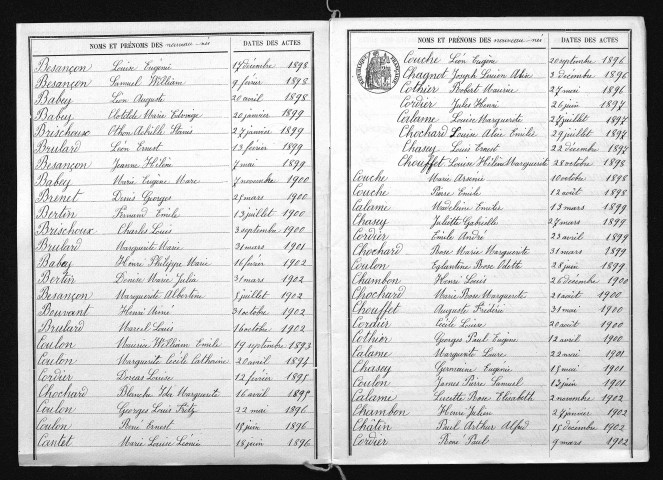 NOMS ET PRÉNOMS DES nouveau-nés DATES DES ACTES
Besançon Louis Eugène 17 décembre 1898
Besançon Samuel William 9 février 1898
Babey Léon Auguste 20 avril 1898
Babey Clotilde Marie Edwige 20 janvier 1899
Brischoux Othon Achille Stanis 27 janvier 1899
Brulard Léon Ernest 13 février 1899
Besançon Jeanne Hélène 7 mai 1899
Babey Marie Eugène Marc 7 novembre 1900
Brenet Denis Georges 2 j mars 1900
Bertin Fernand Emile 13 juillet 1900
Brischoux Charles Louis 3 septembre 1900
Brulard Marguerite Marie 31 mars 1901
Babey Henri Philippe Marie 16 février 1902
Bertin Denise Marie Julia 31 mars 1902
Besançon Marguerite Albertine 8 juillet 1902
Bouvant Henri Aimé 31 octobre 1902
Brulard Marcel Louis 16 octobre 1902
Coulon Maurice William Emile 19 septembre 1893
Coulon Marguerite Cécile Catherine 20 avril 1894
Cordier Dorcas Louise 12 février 1895
Chochard Blanche Ida Marguerite 16 avril 1895
Coulon Georges Louis Fritz 22 mai 1896
Coulon René Ernest 18 juin 1896
Cantet Marie Louise Léonie 18 juin 1896
NOMS ET PRÉNOMS DES nouveau-nés DATES DES ACTES
Couche Léon Eugène 20 septembre 1896
Chagnot Joseph Lucien 3 décembre 1896
Cothier Robert Maurice 27 mai 1896
Cordier Jules Henri 26 juin 1897
Calame Louise Marguerite 27 juillet 1897
Chochard Louise Alice Emilie 29 juillet 1897
Chasey Louis Ernest 22 décembre 1897
Chouffet Louise Hélène Marguerite 28 octobre 1898
Couche Marie Arsène 10 octobre 1898
Couche Pierre Emile 12 août 1898
Calame Madeleine Emilie 13 mars 1899
Chasey Juliette Gabrielle 27 mars 1899
Cordier Emile André 23 avril 1899
Chochard Rose Marie Marguerite 31 mars 1899
Coulon Eglantine Rose Odette 28 juin 1899
Chambon Henri Louis 26 décembre 1900
Chochard Marie Rose Marguerite 21 août 1900
Chouffet Auguste Frédéric 31 mai 1900
Cordier Cécile Louise 20 août 1900
Cothier Georges Paul Eugène 12 avril 1900
Calame Marguerite Laure 22 avril 1901
Chasey Germaine Eugénie 15 mai 1901
Coulon James Pierre Samuel 13 juin 1901
Calame Lucette Rose Elisabeth 2 novembre 1902
Chambon Henri Julien 27 janvier 1902
Châtin Paul Arthur Alfred 18 décembre 1902
Cordier René Paul 9 mars 1902